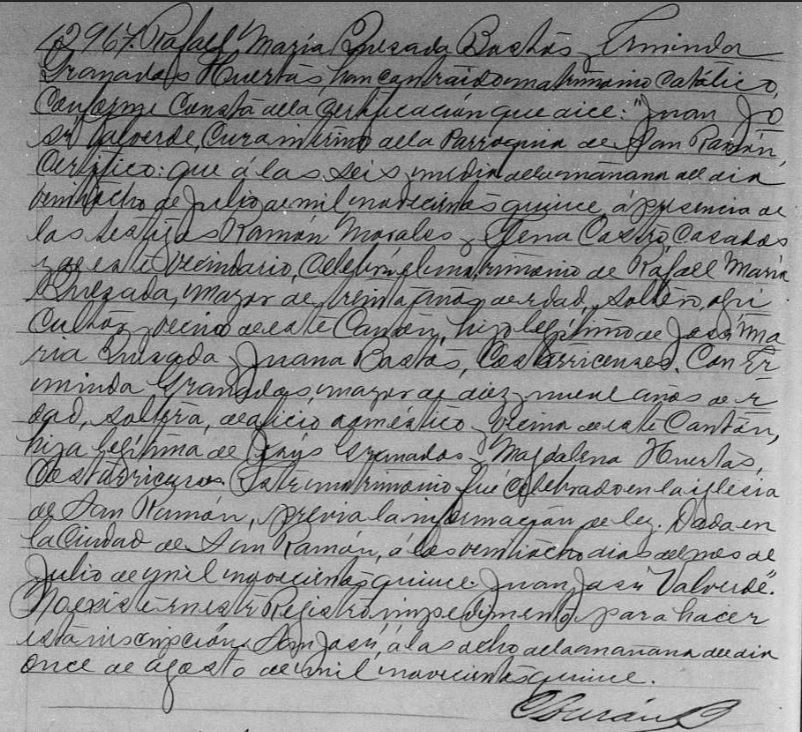 12967. Rafael María Quesada Bastos y Erminda
Granados Huertas han contraido matrimonio católico,
conforme consta de la certificación que dice: "Juan Jo
sé Valverde, Cura interino de la Parroquia de San Ramón,
certifico: que á las seis y media de la mañana del dia
veintiocho de Julio de mil novecientos quince, á presencia de
los testigos Ramón Morales y Elena Castro, casados
y de este vecindario, celebré el matrimonio de Rafael María
Quesada, mayor de treinta años de edad, soltero, agri
cultor y vecino de este Cantón, hijo legítimo de José Ma
ria Quesada y Juana Bastos, Costarricenses. Con Er
minda Granados, mayor de diez y nueve años de e
dad, soltera, de oficio doméstico y vecina de este Cantón,
hija legítima de Granados y Magdalena Huertas,
Costarricenses. Este matrimonio fué celebrado en la iglesia
de San Ramón, previa la información de ley. Dada en
la Ciudad de San Ramón, á los veintiocho dias del mes de
Julio de mil novecientos quince. Juan José Valverde".
No existe en este Registro impedimento para hacer
esta inscripción. San José, á las ocho de la mañana del dia
once de agosto de mil novecientos quince.